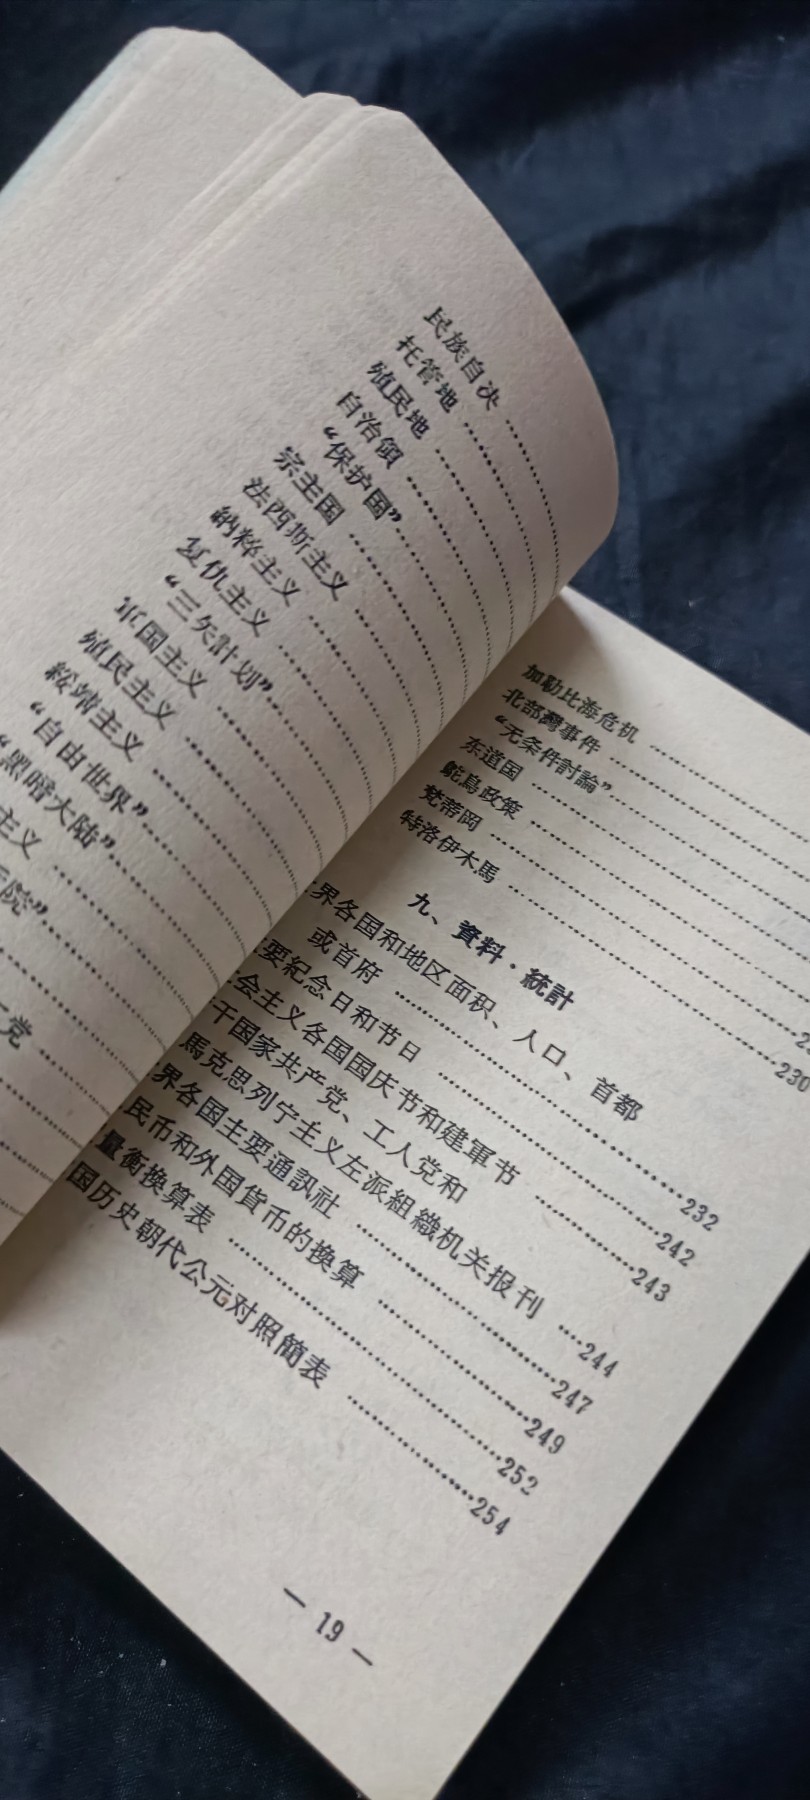 民族自决
托管地
殖民地
自治領
“保护国”
宗主国
法西斯主义
納粹主义
复仇主义
“三矢計划”
軍国主义
殖民主义
綏靖主义
“自由世界”
“黑暗大陆”
主义
院”
党
加勒比海危机
北部灣事件
“无条件討論”
东道国
鴕鳥政策
梵蒂岡
特洛伊木馬 230
九、資料·統計
界各国和地区面积、人口、首都
或首府 232
要紀念日和节日 242
会主义各国国庆节和建軍节 243
干国家共产党、工人党和
馬克思列宁主义左派組織机关报刊 244
界各国主要通訊社 247
民币和外国貨币的換算 249
量衡換算表 252
国历史朝代公元对照簡表 254
— 19 —